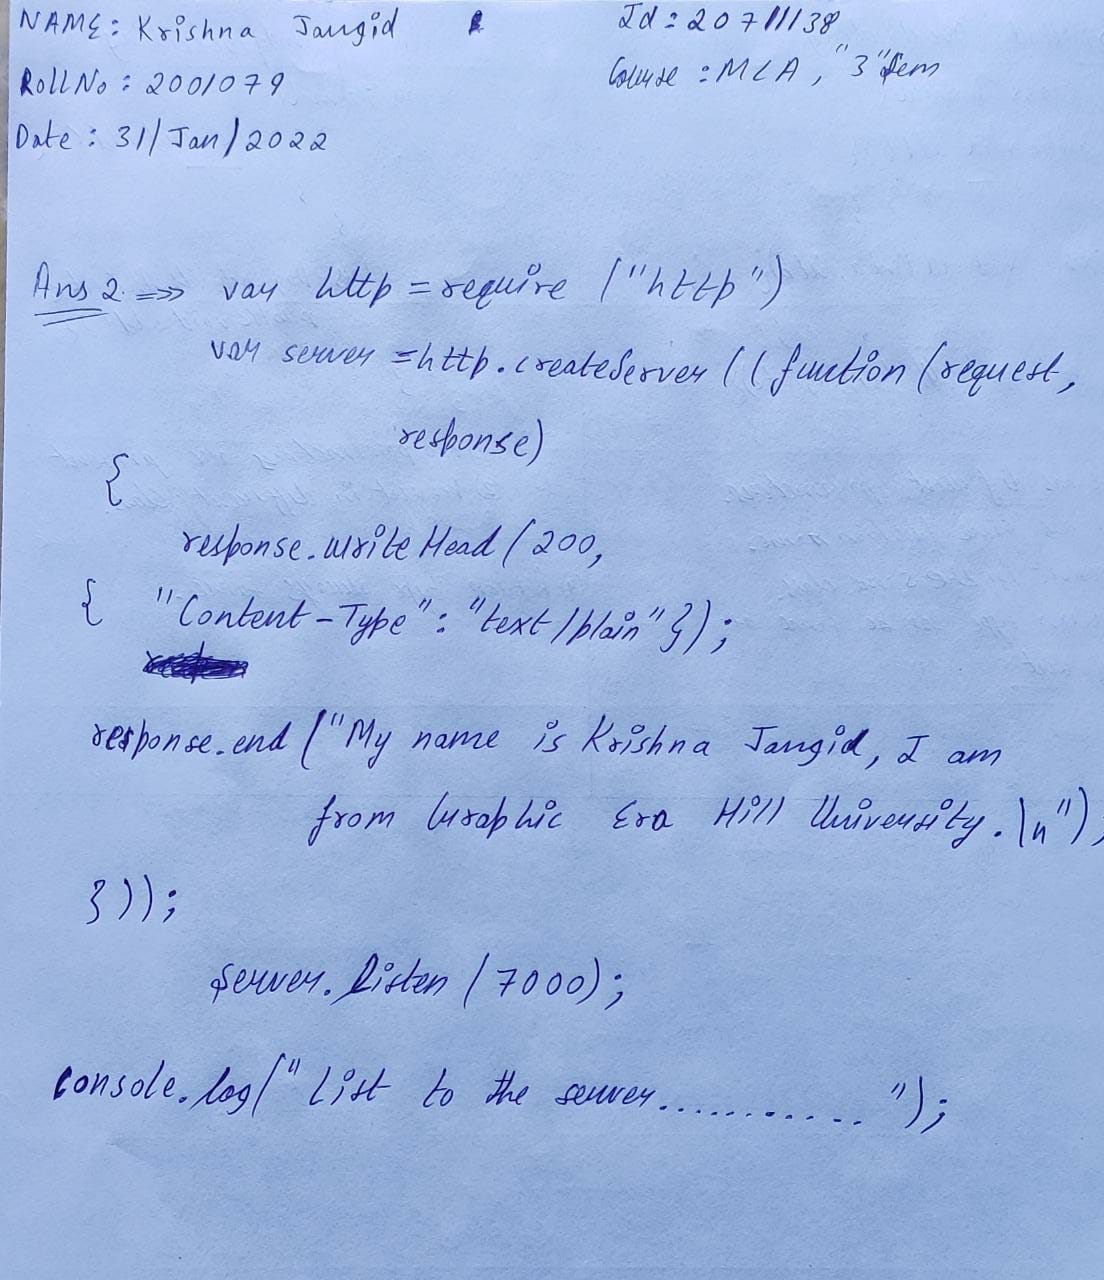 NAME: Krishna Jangid
Id: 20711138
Roll No: 2001079
Course: MCA, "3" Sem
Date: 31/Jan/2022
Ans 2. => var http = require ("http")
var server = http.createServer ((function (request,
response)
{
response.writeHead (200,
{ "Content-Type": "text/plain"});
response.end ("My name is Krishna Jangid, I am
from Graphic Era Hill University.\n"),
}));
server.listen (7000);
console.log("List to the server............");